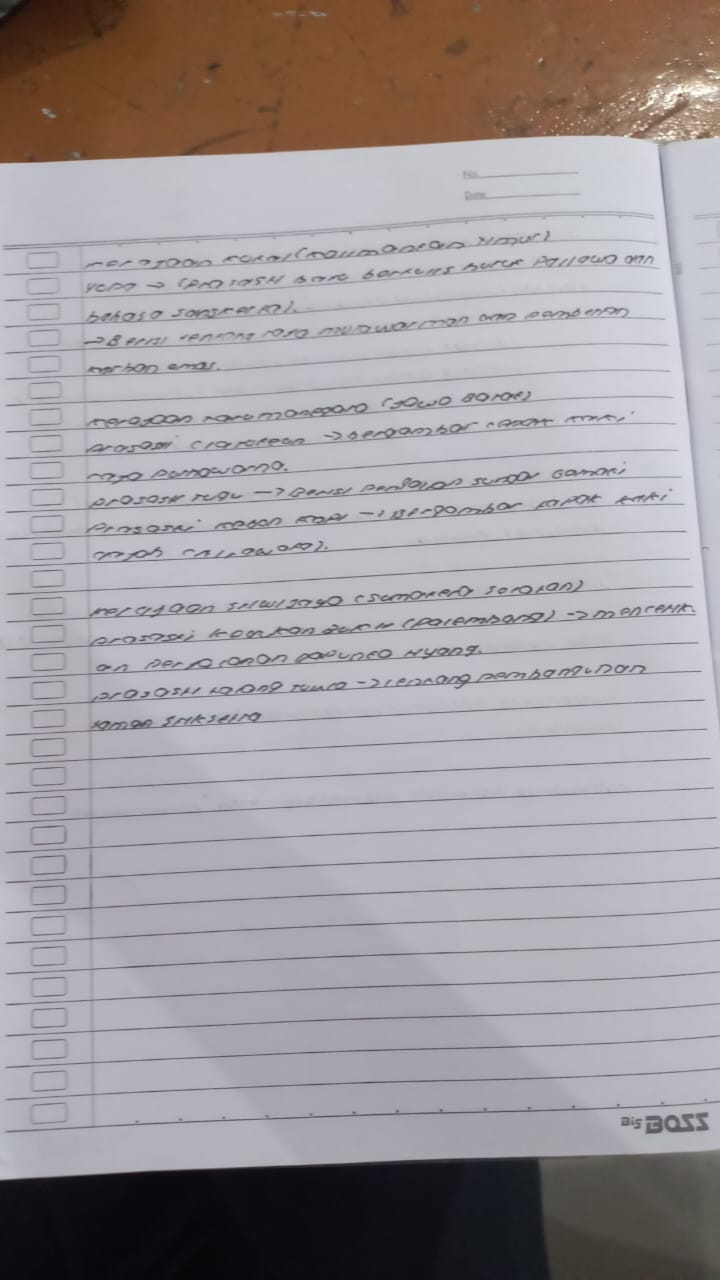 No.
Date
Kerajaan Kutai (Kalimantan Timur)
Yupa → (prasasti batu berhuruf Pallawa dan
bahasa sanskerta).
→ Berisi tentang raja mulawarman dan pemberian
korban emas.
Kerajaan Tarumanegara (Jawa Barat)
prasasti Ciaruteun → bergambar tapak kaki
raja purnawarna.
prasasti tugu → Berisi sungai Gomati
Prasasti Kebon Kopi → bergambar tapak kaki
gajah
Kerajaan Sriwijaya (Sumatera Selatan)
prasasti (Palembang) → mencerit
an perjalanan dapunta Hyang.
prasasti talang tuwo → tentang pembangunan
taman Sriksetra
Big BOSS